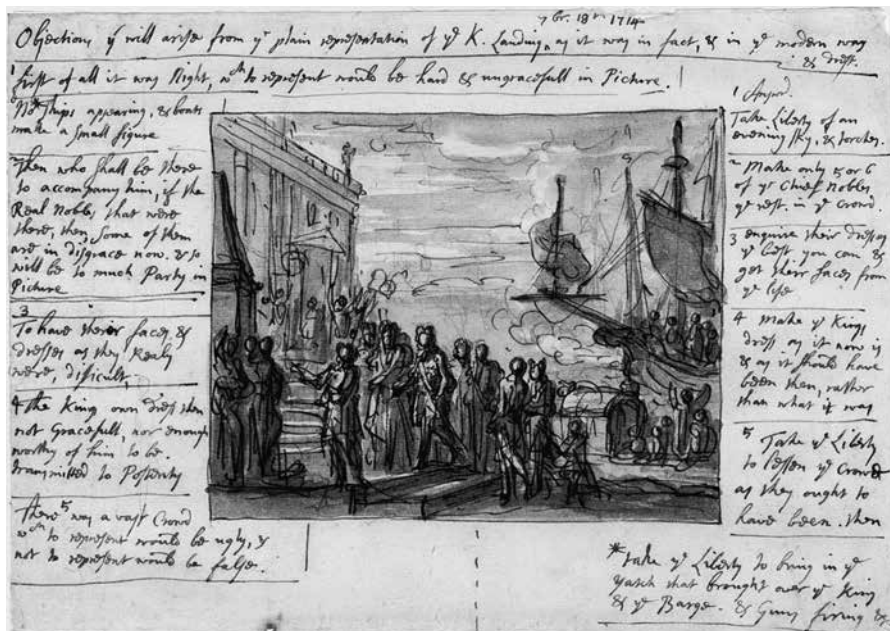 7br. 18th 1714
Objections yt will arise from ye plain representation of ye K. Landing, as it was in fact, & in ye modern way
& dress.
1 first of all it was Night, wch to represent would be hard & ungracefull in Picture.
No* ships appearing, & boats
make a small figure
2 Then who shall be there
to accompany him, if the
Real Nobles that were
there, then some of them
are in disgrace now. & so
will be to much Party in
Picture
3
To have their faces &
dresses as they Realy
were, difficult.
4 the King own dress then
not Gracefull, nor enough
worthy of him to be
transmitted to Posterity
5
there was a vast Crowd
wch to represent would be ugly, &
not to represent would be false.
1 Answr.
Take Liberty of an
evening sky, & torches.
2 Make only 5 or 6
of ye Chief Nobles
ye rest. in ye Crowd.
3 enquire their dresses
ye best you can &
get their faces from
ye life
4 Make ye Kings
dress as it now is
& as it should have
been then, rather
than what it was
5 Take ye Liberty
to lessen ye Crowd
as they ought to
have been. then
* take ye Liberty to bring in ye
Yatch that brought over ye King
& ye Barge. & Guns firing &